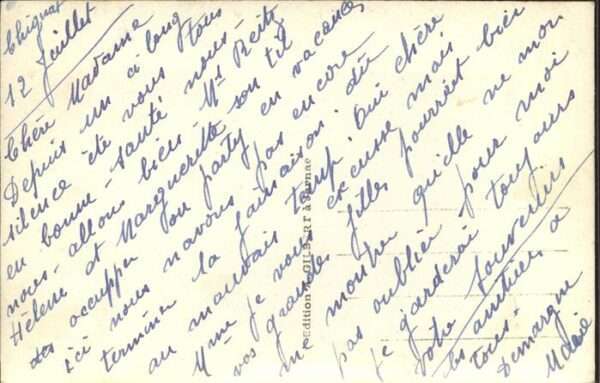 Chignat
12 Juillet
Chère Madame
Depuis un ci long
silence ete vous tous
en bonne santé nous-
nous allons bien Mr
Hélène et Marguerite son til
des occupper ou party en vacances
ici nous navons pas encore
terminer la fauxaison. du
au mauvais temp. Oui chère
Mme je vous excusse mais
vos grandes filles pourrait bien
me montrer qu'elle ne mon
pas oublier pour moi
je garderai toujours
votre souvenirs
les amities a
tous-
Demarque
Marie
Edition GILBERT à